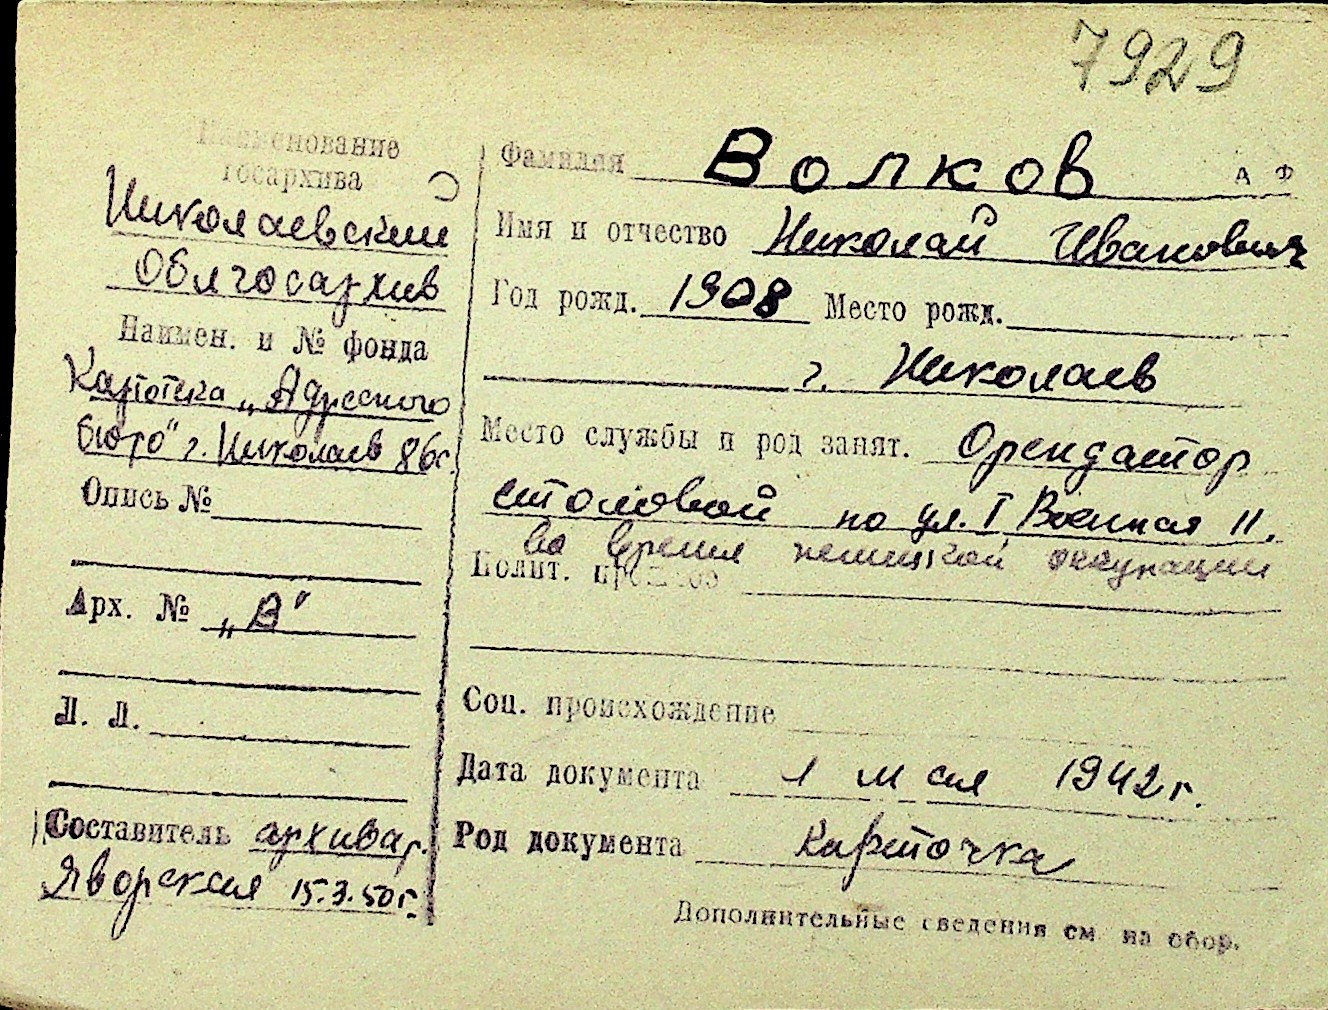 7929
Наименование
госархива
Николаевский
Облгосархив
Наимен. и № фонда
Картотека „Адресного
бюро" г. Николаев 86с.
Опись №
Арх. № „В"
Л. Л.
Составитель архивар.
Яворская 15.3.50г.
Фамилия Волков А Ф
Имя и отчество Николай Иванович
Год рожд. 1908 Место рожд.
г. Николаев
Место службы и род занят. Орендатор
столовой по ул. I Военная 11.
во время немецкой оккупации
Полит. прошлое
Соц. происхождение
Дата документа 1 мая 1942г.
Род документа Карточка
Дополнительные сведения см на обор.